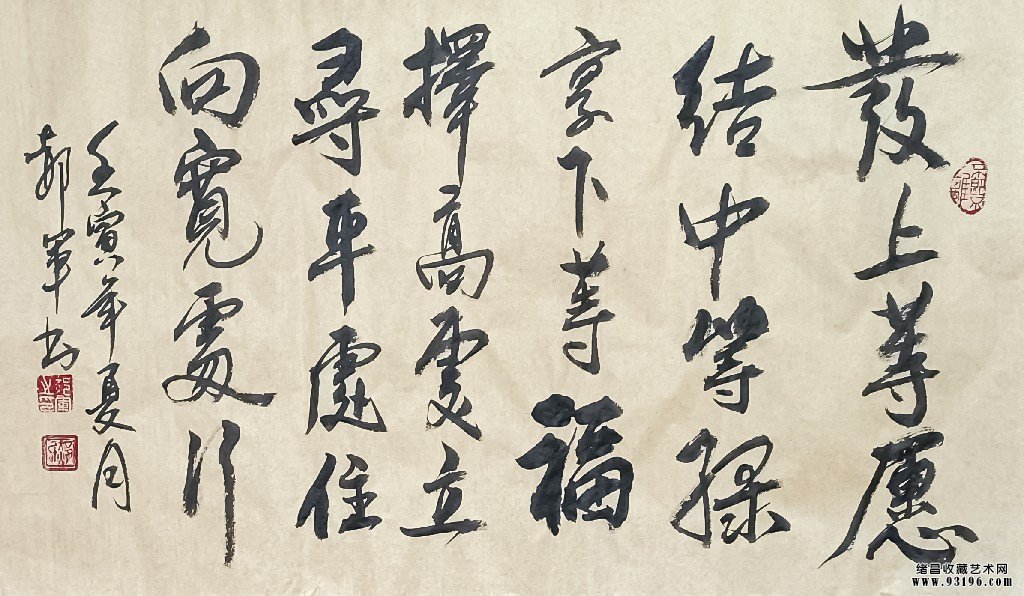 發上等愿
結中等緣
享下等福
擇高處立
尋車處住
向寬處行
壬寅年夏月
郝軍书
绪昌收藏艺术网
www.93196.com